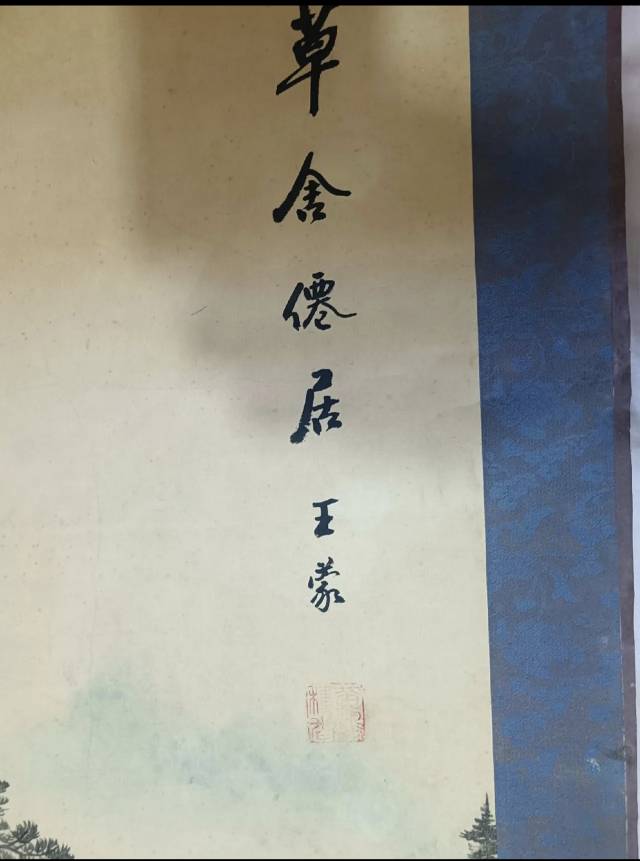 草舍僊居 王蒙